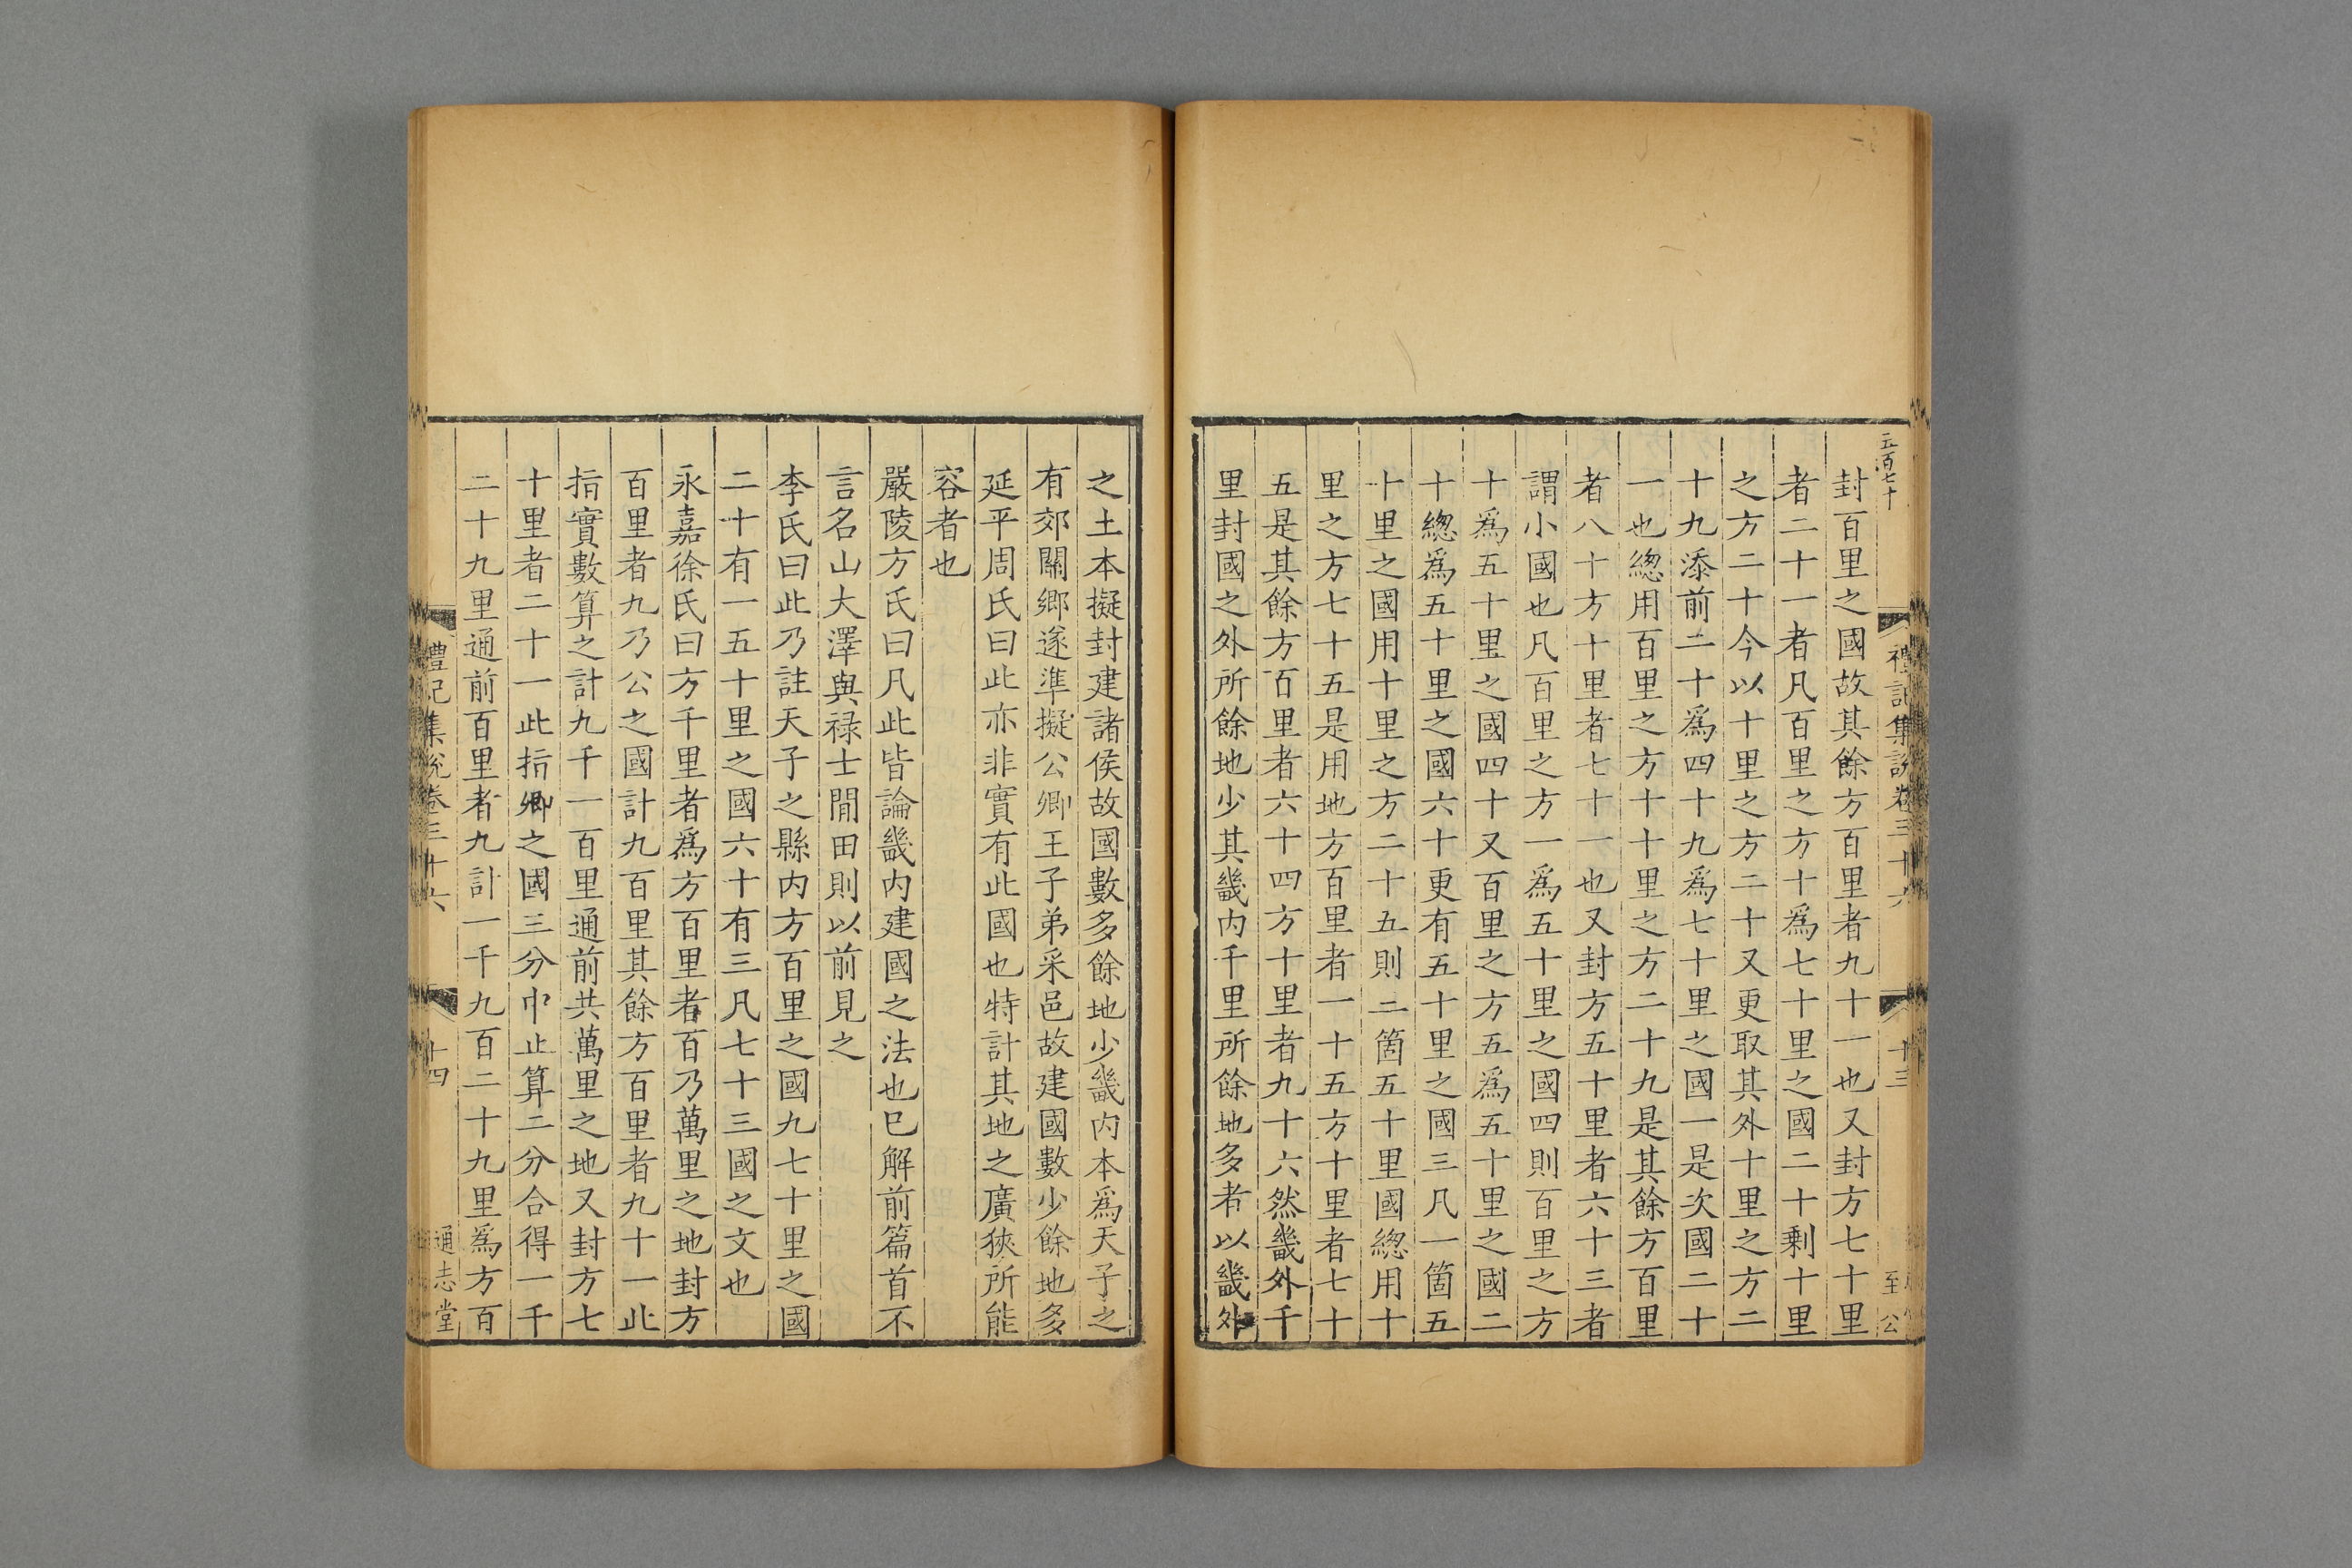 五百七十
禮記集說卷三十六
十三
至公
封百里之國故其餘方百里者九十一也又封方七十里
者二十一者凡百里之方十爲七十里之國二十剩十里
之方二十今以十里之方二十又更取其外十里之方二
十九添前二十爲四十九爲七十里之國一是次國二十
一也緫用百里之方十十里之方二十九是其餘方百里
者八十方十里者七十一也又封方五十里者六十三者
謂小國也凡百里之方一爲五十里之國四則百里之方
十爲五十里之國四十又百里之方五爲五十里之國二
十緫爲五十里之國六十更有五十里之國三凡一箇五
十里之國用十里之方二十五則二箇五十里國緫用十
里之方七十五是用地方百里者一十五方十里者七十
五是其餘方百里者六十四方十里者九十六然畿外千
里封國之外所餘地少其畿内千里所餘地多者以畿外
之土本擬封建諸侯故國數多餘地少畿内本爲天子之
有郊關鄉遂準擬公卿王子弟采邑故建國數少餘地多
延平周氏曰此亦非實有此國也特計其地之廣狹所能
容者也
嚴陵方氏曰凡此皆論畿内建國之法也已解前篇首不
言名山大澤與禄士閒田則以前見之
李氏曰此乃註天子之縣内方百里之國九七十里之國
二十有一五十里之國六十有三凡七十三國之文也
永嘉徐氏曰方千里者爲方百里者百乃萬里之地封方
百里者九乃公之國計九百里其餘方百里者九十一此
指實數算之計九千一百里通前共萬里之地又封方七
十里者二十一此指卿之國三分中止算二分合得一千
二十九里通前百里者九計一千九百二十九里爲方百
禮記集說卷三十六
十四
通志堂